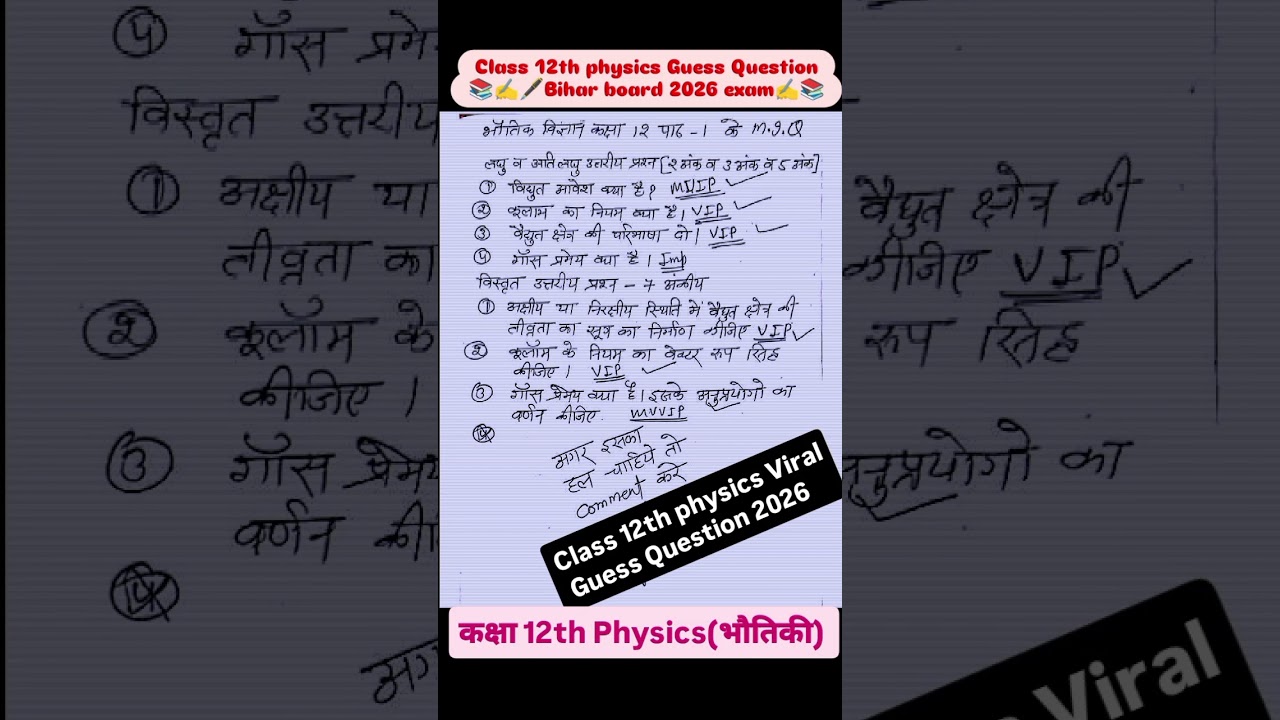 Class 12th physics Guess Question
📚✍️🖋️Bihar board 2026 exam✍️📚
भौतिक विज्ञान कक्षा 12 पाठ -1 के M.I.Q
लघु व अति लघु उत्तरीय प्रश्न [2 अंक व 3 अंक व 5 अंक]
① विद्युत आवेश क्या है? MVIP
② कूलाम का नियम क्या है। VIP
③ वैद्युत क्षेत्र की परिभाषा दो। VIP
④ गॉस प्रमेय क्या है। Imp
विस्तृत उत्तरीय प्रश्न - 7 अंकीय
① अक्षीय या निरक्षीय स्थिति में वैद्युत क्षेत्र की
तीव्रता का सूत्र का निर्माण कीजिए VIP
② कूलॉम के नियम का वेक्टर रूप सिद्ध
कीजिए। VIP
③ गॉस प्रेमय क्या है। इसके अनुप्रयोगो का
वर्णन कीजिए. MVVIP
अगर इसका
हल चाहिये तो
Comment करे
Class 12th physics Viral
Guess Question 2026
कक्षा 12th Physics(भौतिकी)